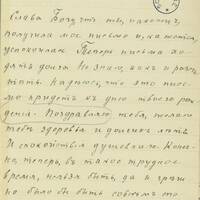 Слава Богу, что ты, наконец,
получила мое письмо и, кажется,
успокоилась. Теперь письма хо-
дят долго. Не знаю, как и
Надеюсь, что это пись-
мо придет к дню твоего рож-
дения. Поздравляю тебя, желаю
тебе здоровья и долгих лет
и спокойствия душевного. Конеч-
но теперь, в такое трудное
время, нельзя быть, да и
но было бы быть совсем спо